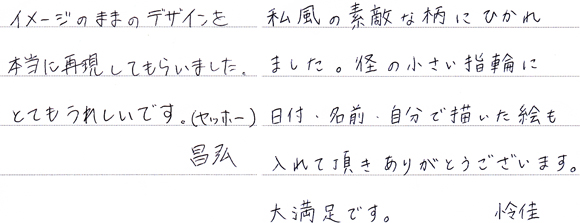 イメージのままのデザインを
本当に再現してもらいました。
とてもうれしいです。(ヤッホー)
昌弘
私風の素敵な柄にひかれ
ました。径の小さい指輪に
日付・名前・自分で描いた絵も
入れて頂きありがとうございます。
大満足です。 怜佳